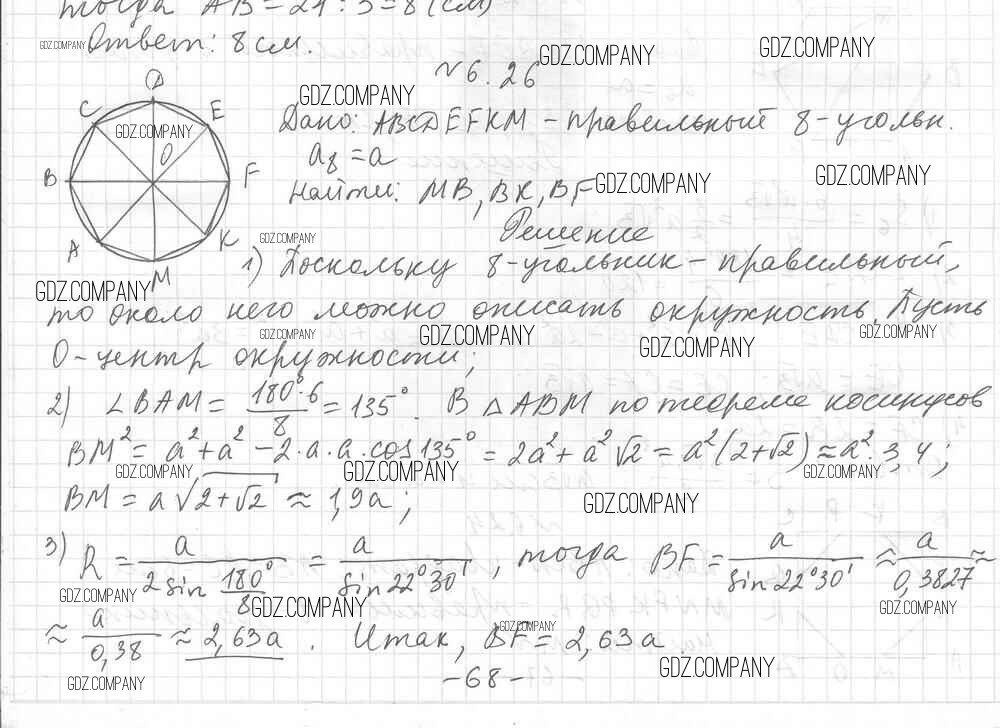 тогда AB = 24 : 3 = 8 (см)
Ответ: 8 см.
GDZ.COMPANY
GDZ.COMPANY
GDZ.COMPANY
№ 6.26
GDZ.COMPANY
D
C
E
GDZ.COMPANY
O
B
F
A
K
M
Дано: ABCDEFKM – правильный 8-угольн.
a₈ = a
Найти: MB, BK, BF
GDZ.COMPANY
GDZ.COMPANY
Решение
GDZ.COMPANY
1) Поскольку 8-угольник – правильный,
GDZ.COMPANY
то около него можно описать окружность. Пусть
GDZ.COMPANY
GDZ.COMPANY
GDZ.COMPANY
GDZ.COMPANY
O – центр окружности;
2) ∠BAM = 180°·6/8 = 135°. В △ABM по теореме косинусов
BM² = a² + a² – 2·a·a·cos 135° = 2a² + a²√2 = a²(2+√2) ≈ a²·3,4;
GDZ.COMPANY
GDZ.COMPANY
GDZ.COMPANY
BM = a√(2+√2) ≈ 1,9a;
GDZ.COMPANY
3) R = a/(2 sin 180°/8) = a/sin 22°30', тогда BF = a/sin 22°30' ≈ a/0,3827 ≈
GDZ.COMPANY
GDZ.COMPANY
GDZ.COMPANY
≈ a/0,38 ≈ 2,63a. Итак, BF = 2,63a.
GDZ.COMPANY
GDZ.COMPANY
GDZ.COMPANY
– 68 –